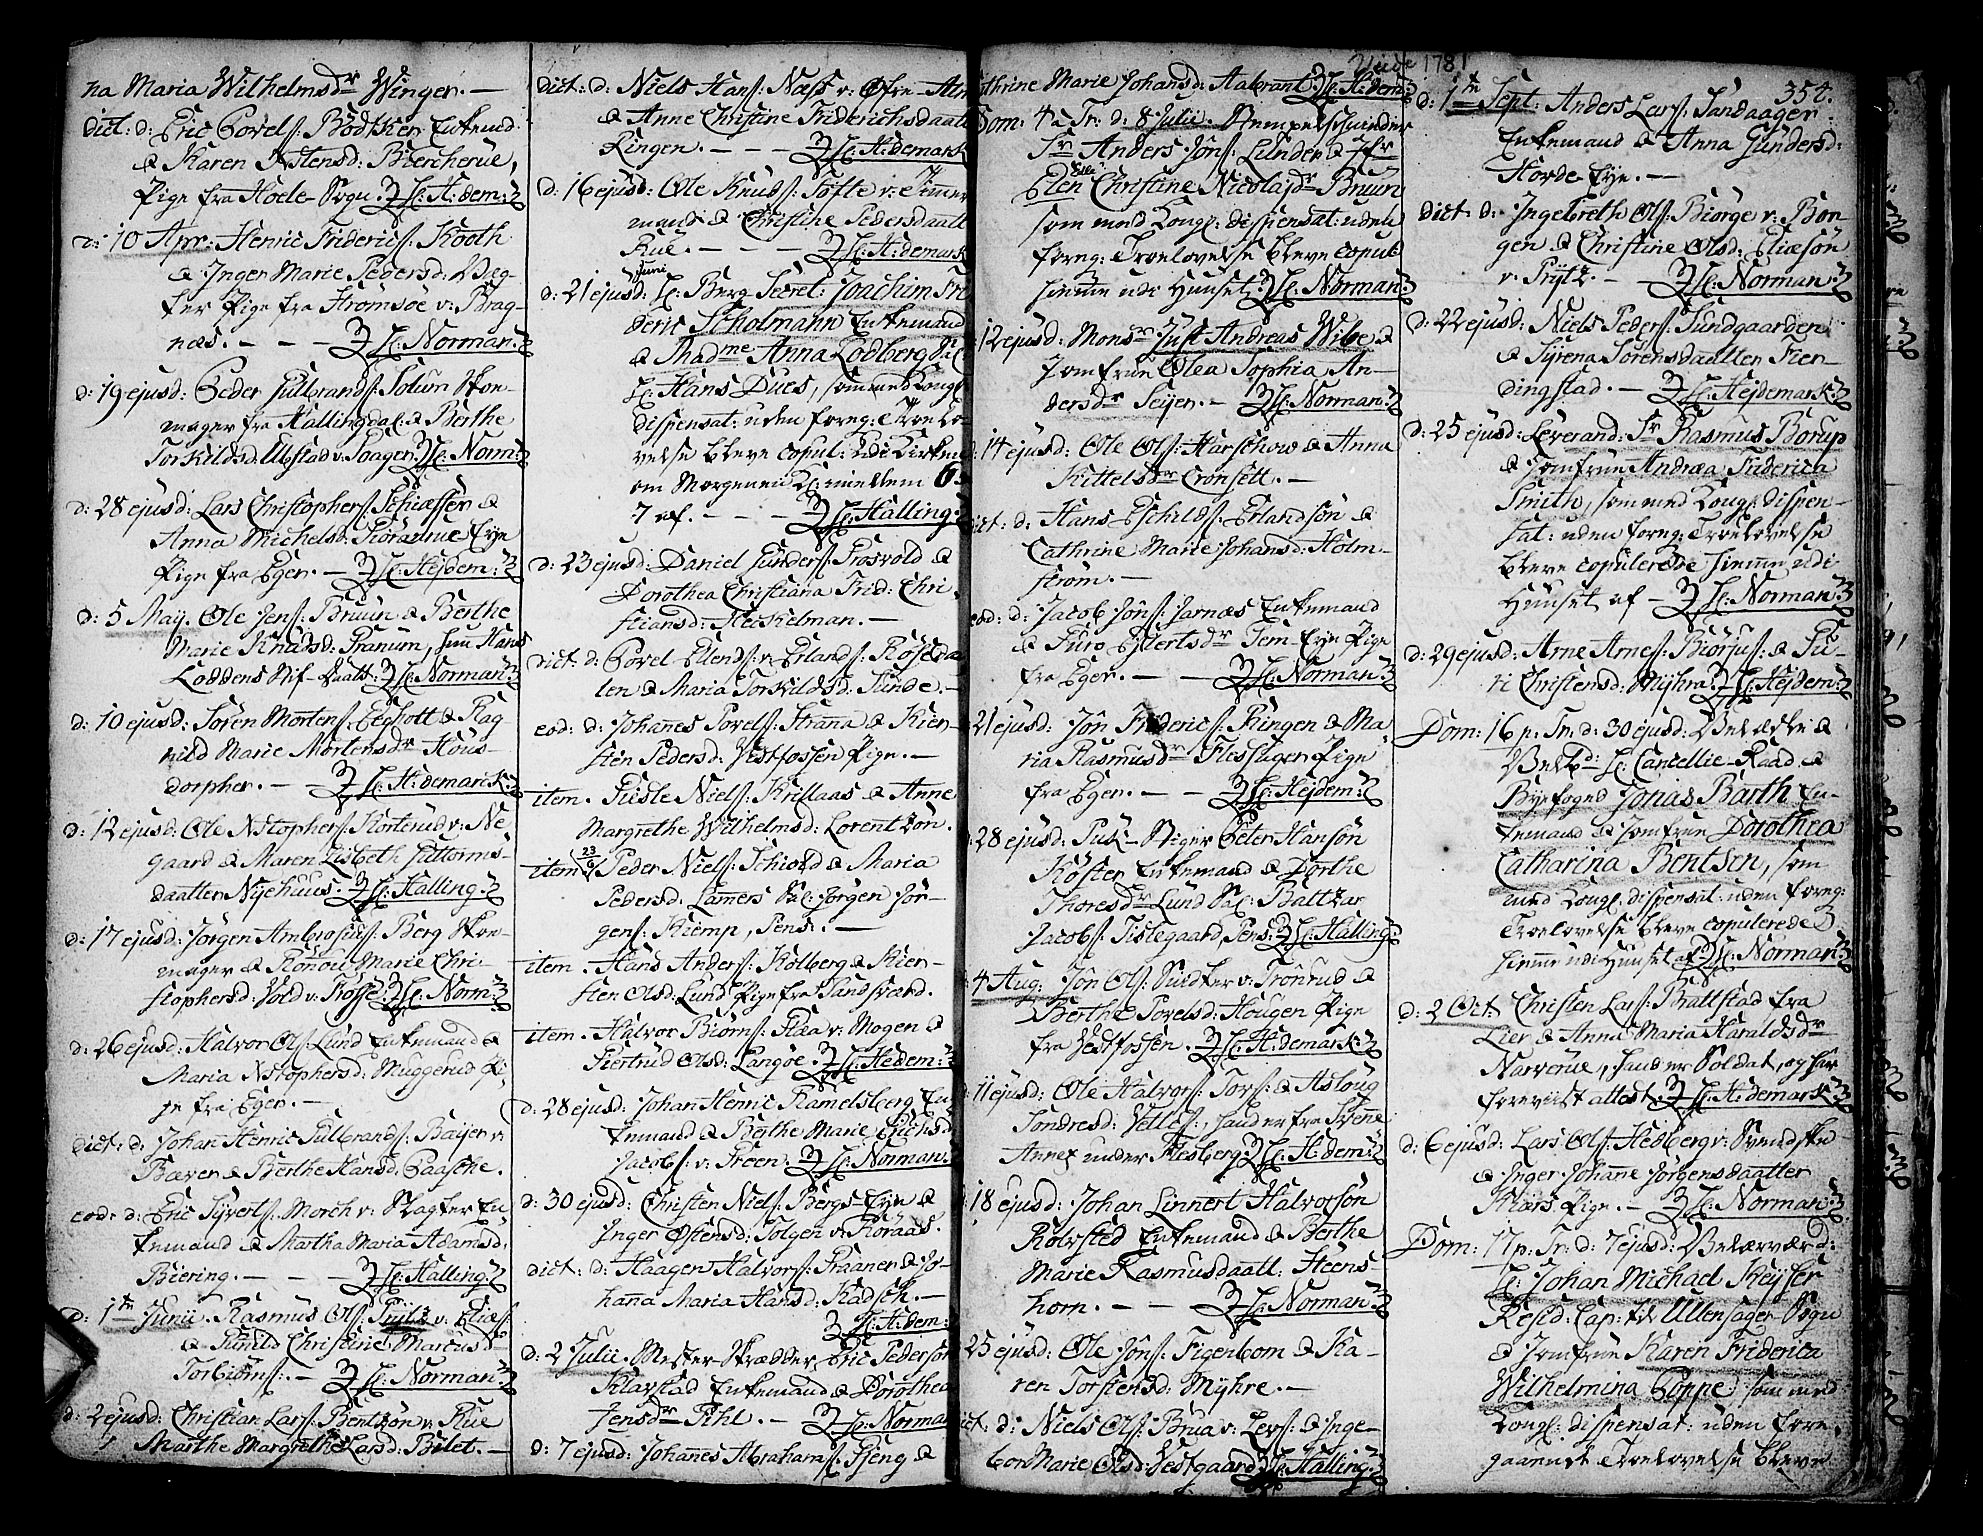 na Maria Wilhelmsdr Winger. —
dict: d: Eric Povels: Bödtker Enkemd
& Karen Østensd: Bierkerue,
Pige fra Hoele Sogn. Hr: H:dem:
d: 10 Apr: Henric Friderics: Kooth
& Inger Marie Pedersd: Væg
ter Pige fra Strömsöe v: Brag-
næs. — — — Hr: Norman:
d: 19 ejusd: Peder Gulbrands: Solum Skoe-
mager fra Hallingdal: & Berthe
Torkildsd: Ulstad v: Saager. Hr: Norm:
d: 28 ejusd: Lars Christophers: Schiefser &
Anna Michelsd: Eye
Pige fra Eger. — Hr: Hejdem:
d: 5 May. Ole Jens: Bruun & Berthe
Marie Knudsd: Pranum, Hans
Loddens Stif-Daatt: Hr: Norman:
d: 10 ejusd: Sören Mortens: Eegholt & Rag-
nild Marie Mortensdr Hous-
dorpher. — Hr: H:demarck:
d: 12 ejusd: Ole Xstophers: Korterud v: Ne-
gaard & Maren Lisbeth Guttorms-
daatter Nyehuus. Hr: Halling:
d: 17 ejusd: Jörgen Ambrosius: Berg Skoe-
mager & Ronou Marie Chri-
stophersd: Vold v: Kosse: Hr: Norm:
d: 26 ejusd: Halvor Ols: Lund Enkemand &
Maria Xstophersd: Muggerud Pi-
ge fra Eger. —
Dict: d: Johan Henric Gulbrands: Baijer v:
Bæver & Berthe Hansd: Paaske.
eod: d: Eric Syverts: Morch v: Slagter En-
kemand & Martha Maria Adamsd:
Biering. — — — Hr: Halling:
d: 1te Junii. Rasmus Ols: Prytz v: Elies:
& Gunild Christine Marcusd:
Torbiörns: — Hr: Norman:
d: 2 ejusd: Christian Lars: Bentzön v: Rue
& Marthe Margrethe Larsd: Bilet. —
dict: d: Niels Hans: Næss v: Öfre-
& Anne Christine Friderichsdaatt
Ringen. — — — Hr: H:demark
d: 16 ejusd: Ole Knuds: Tofte v: Timmer
mand & Christine Pedersdaatt
Rue. — — — Hr: H:demark
d: 21 ejusd: Juni Hr: Berg Secret: Joachim Fri
deric Stholmann Enkemand
& Madme Anna Lodberg Sal:
Hr: Hans Dues, som med Kongl:
dispensat: uden foreg: Troelo
velse bleve copul: udi Kirken
om Morgenen Kl: imellem 6 &
7 af. — — — Hr: Halling:
d: 23 ejusd: Daniel Gunders: Frosvold &
Dorothea Christiana Frid: Chri-
stiansd: Heikelman. —
dict: d: Povel Ellends: v: Erlands: Roseda
len & Maria Torkildsd: Tunde. —
eod: d: Johanes Povels: Strana & Kier-
sten Pedersd: Vestfossen Pige. —
item. Gisle Niels: Krillaas & Anne
Margrethe Wilhelmsd: Lorentzön.
item 23/6 Peder Niels: Schiold & Maria
Pedersd: Lamers Sal: Jörgen Jör-
gens: Kiemp, Pens: —
item. Hans Anders: Kolberg & Kier-
sten Olsd: Lund Pige fra Sandsværd.
item. Halvor Biörns: Flaa v: Mogen &
Giertrud Olsd: Langöe. Hr: Hedem:
d: 28 ejusd: Johan Henric Ramelsberg En
kemand & Berthe Marie Erichsd:
Jacobs: v: Treen. Hr: Norman:
d: 30 ejusd: Christen Niels: Bergs-Eye &
Inger Östensd: Tolgen v: Röraas.
dict: d: Haagen Halvors: Fraanes & Jo-
hanna Maria Hansd: Kadsch. —
Hr: H:dem:
d: 2 Julii. Mester-Skrædder Eric Pedersön
Klavstad Enkemand & Dorothea
Jensdr Pihl. — Hr: Norman
d: 7 ejusd: Johannes Abrahams: Gjeng &
Viede 1781
354.
Cathrine Marie Johansd: Aabrant. Hr: H:dem:
Dom: 4 p: Tr: d: 8 Julii. Stempelskierder
Sr Anders Jöns: Lunder & Jfr
Ellen Christine Nicolajdr Bruun
som med Kongl: dispensat: uden
foreg: Troelovelse bleve copul:
hiemme udi Huuset. Hr: Norman:
12 ejusd: Monsr Just Andreas Wibe &
Jomfrue Olea Sophia An-
dersdr Seijer. — Hr: Norman:
14 ejusd: Ole Ols: Harschow & Anna
Kittelsdr Cronsett. —
dict: d: Hans Eschilds: Erlandsön &
Cathrine Marie Johansd: Holm-
ström. —
eod: d: Jacob Jöns: Jarnæs Enkemand
& Guro Efvertsdr Tem-Eye Pige
fra Eger. — — Hr: Norman:
21 ejusd: Jön Frideric: Ringen & Ma-
ria Rasmusdr Flesager Pige
fra Eger. — — Hr: Hejdem:
28 ejusd: Peter Hansön
Köster Enkemand & Dorthe
Thoresdr Lund Sal: Baltzar
Jacobs: Tislegaard, Pens: Hr: Halling:
4 Aug: Jön Ols: v: Trönrud &
Berthe Povelsd: Hougen Pige
fra Vestfossen. Hr: H:demark:
11 ejusd: Ole Halvors: Tors: & Asloug
Sondresd: Velles:, hand er fra Svene
Annex under Flesberg: Hr: H:dem:
18 ejusd: Johan Linnert Halvorsön
Rolvsted Enkemand & Berthe
Marie Rasmusdaatt: Heens-
horn. — — Hr: Norman:
25 ejusd: Ole Jöns: Figenbom & Ka-
ren Torstensd: Myhre. —
dict: d: Niels Ols: Brua v: Lers: & Inge-
bor Marie Olsd: Vestgaard Hr: Halling:
d: 1te Sept: Anders Lars: Sandaager
Enkemand & Anna Gundersd:
Horde-Eye. —
dict: d: Ingebreth Ols: Biörge v: Bon-
gen & Christine Olsd: Eliæsön
v: Prytz. — Hr: Norman:
d: 22 ejusd: Niels Peders: Sundgaarden
& Syrena Sörensdaatter Fien-
dingstad. — Hr: Hejdemark:
d: 25 ejusd: Leverand: Sr Rasmus Borup
& Jomfrue Andrea Friderica
Smith, som med Kongl: dispen-
sat: uden foreg: Troelovelse
bleve copulerede hiemme udi
Huuset af — Hr: Norman:
d: 29 ejusd: Arne Arnes: Biörjus: & Gu-
ri Christensd: Myhra. Hr: Hejdem:
Dom: 16 p: Tr: d: 30 ejusd: Velædle &
Velbd: Hr: Cancellie-Raad &
Byefoged Jonas Barth En-
kemand & Jomfrue Dorothea
Catharina Bentsen, som
med Kongl: dispensat: uden foreg:
Troelovelse bleve copulerede
hiemme udi Huuset af Hr: Norman:
d: 2 Oct: Christen Lars: Brattstad fra
Lier & Anna Maria Haraldsdr
Narverue, hand er Soldat, og har
foreviist attest: Hr: H:demark:
d: 6 ejusd: Lars Ols: Hedberg v: Svendske
& Inger Johanne Jörgensdaatter
Klærs Pige. — Hr: Norman:
Dom: 17 p: Tr: d: 7 ejusd: Velærværd:
Hr: Johan Michael Keyser
Resid: Cap: til Ullensager Sogn
& Jomfrue Karen Friderica
Wilhelmina Poppe som med
Kongl: dispensat: uden fore-
gaaende Troelovelse bleve